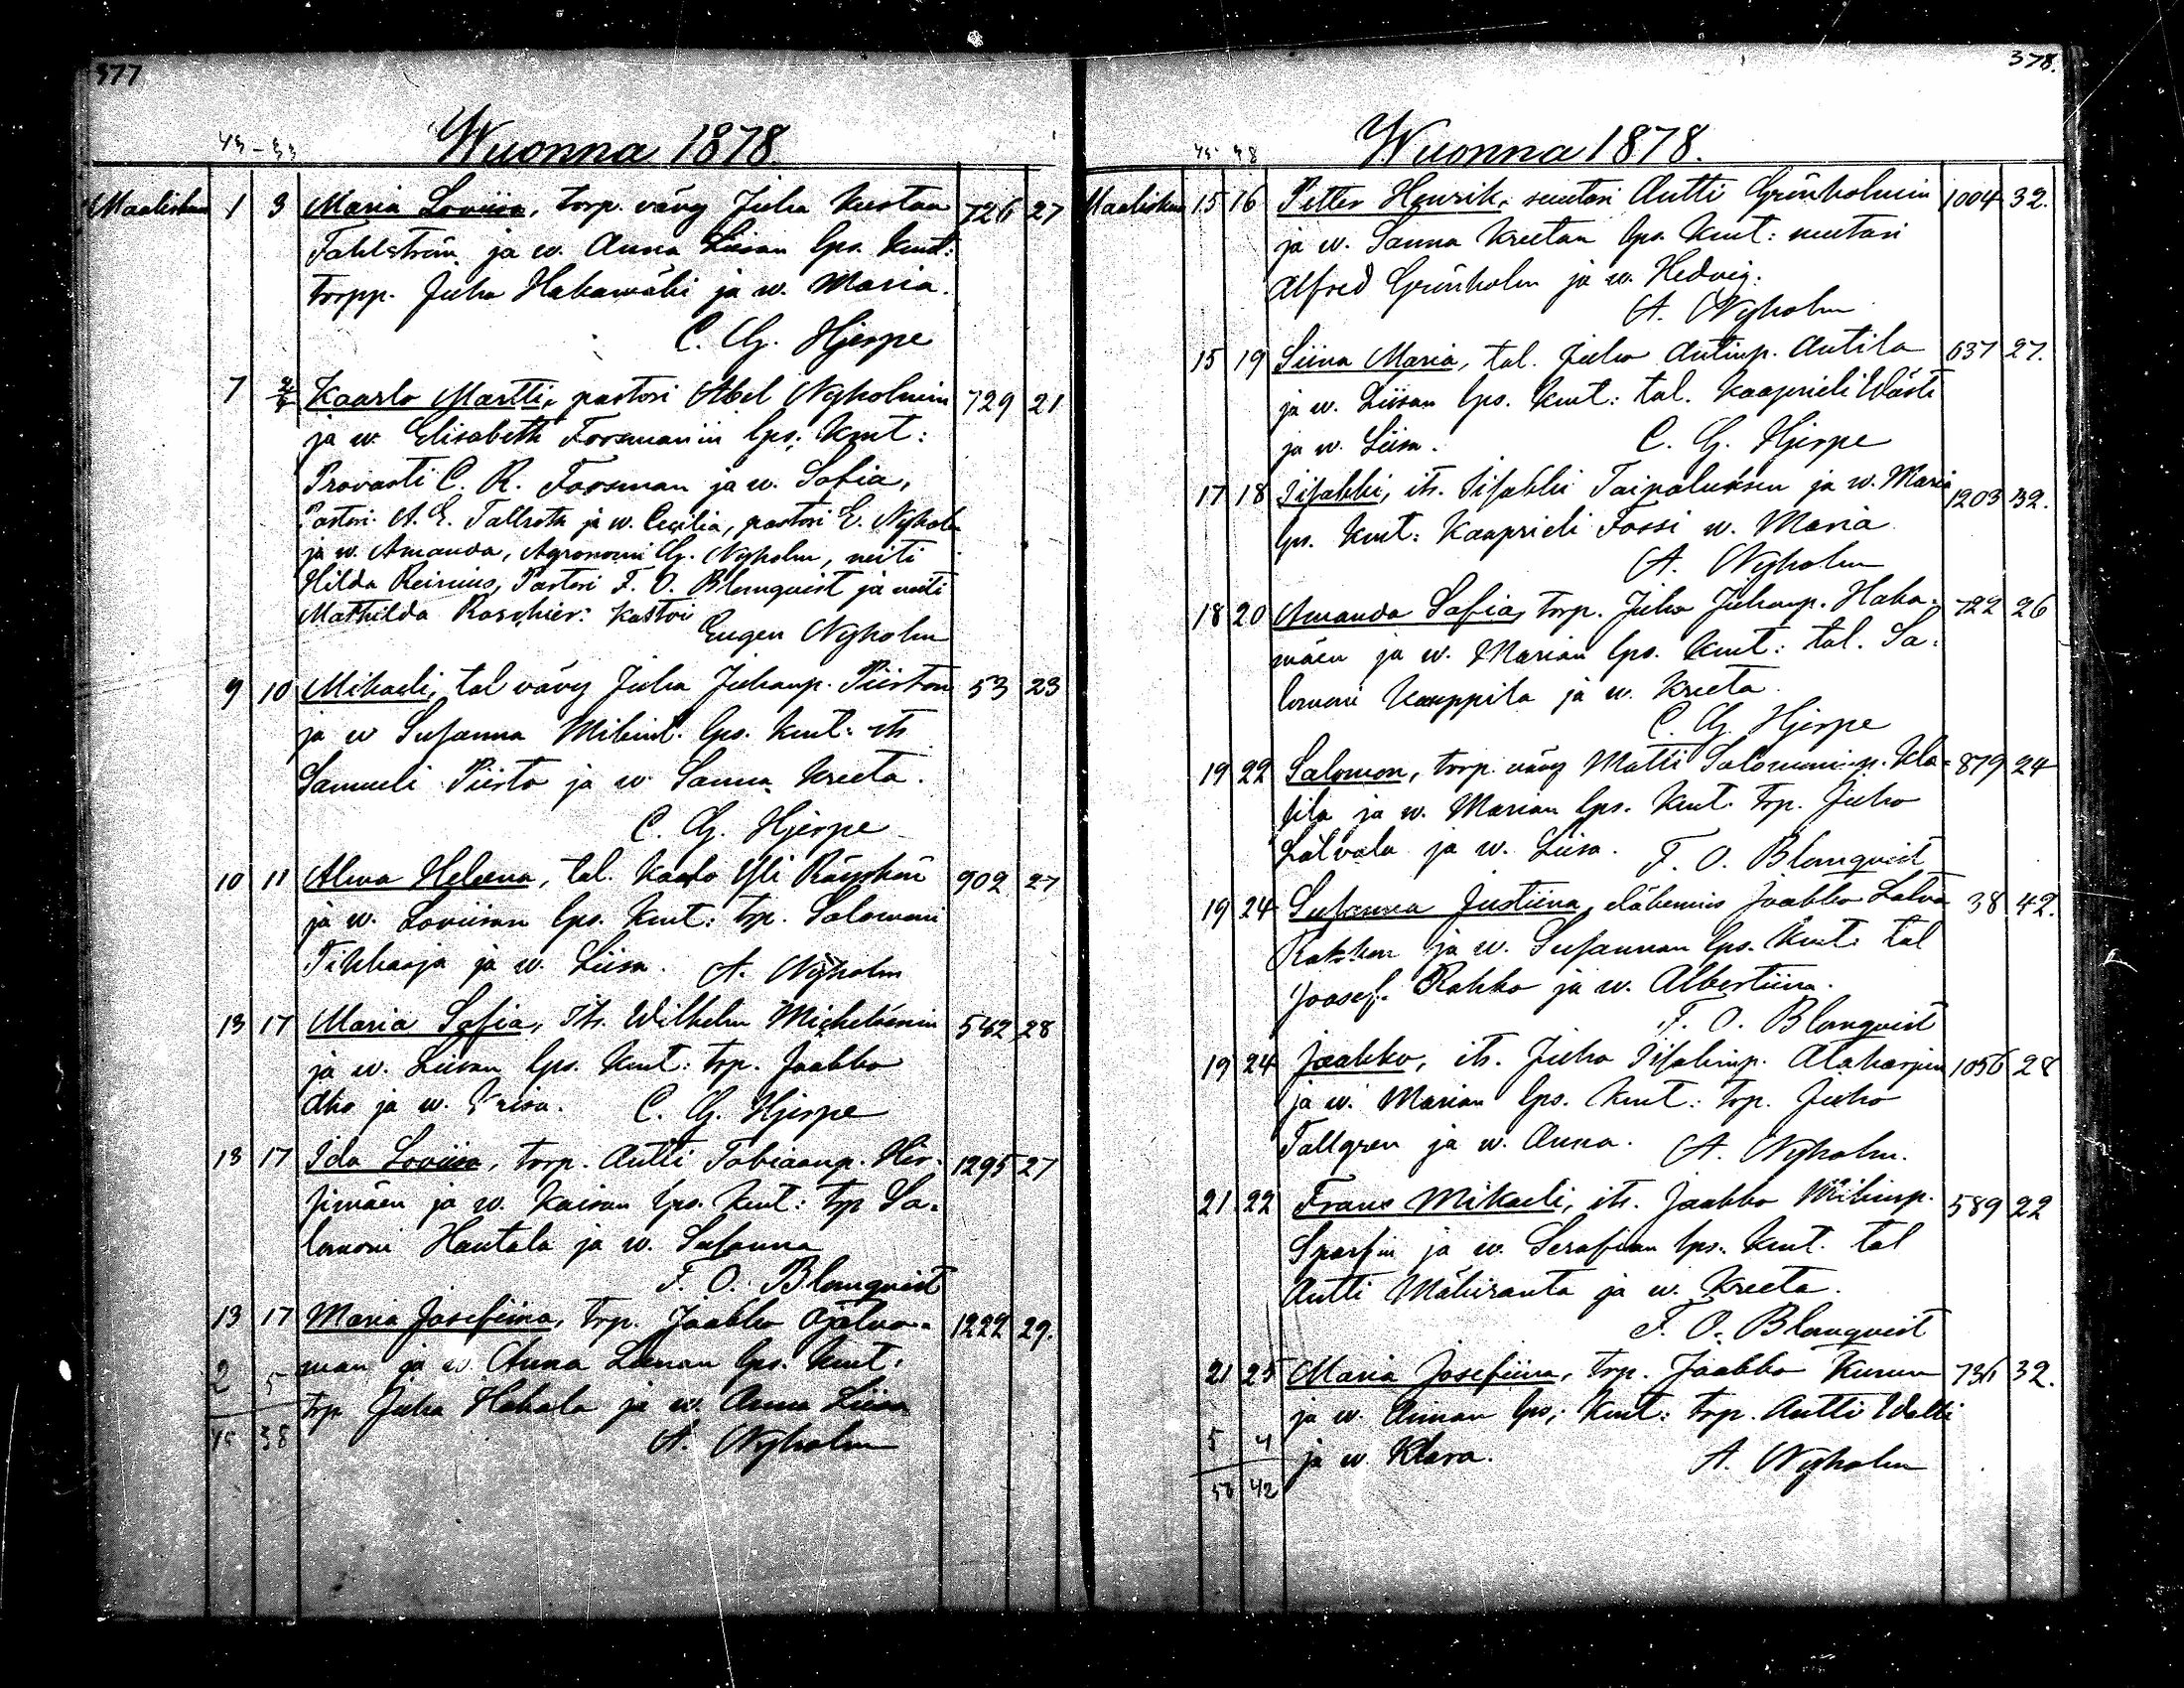 377
Wuonna 1878.
Maaliskuu 1 3 Maria Loviisa, torp. vävy Juha Kustaa 726 27
Fahlström ja w. Anna Liisan lps. Kmt:
torpp. Juha Hakamäki ja w. Maria.
C. G. Hjerpe
7 Kaarlo Martti, pastori Abel Nyholmin 729 21
ja w. Elisabeth Forsmanin lps. Kmt:
Provasti C. R. Forsman ja w. Sofia,
Pastori A. E. Tallroth ja w. Cecilia, pastori E. Nyholm
ja w. Amanda, Agronomi G. Nyholm, neiti
Hilda Reinius, Pastori F. O. Blomqvist ja neiti
Mathilda Raschier: kastoi
Eugen Nyholm
9 10 Mikaeli, tal vävy Juha Juhanp. Piirton 53 23
ja w Susanna Mikint. lps. Kmt. its
Samueli Piirto ja w Sanna Kreeta.
C. G. Hjerpe
10 11 Alma Helena, tal. Kaarlo Yli Räyskön 902 27
ja w. Loviisan lps. Kmt: trp. Salomoni
ja w. Liisa. A. Nyholm
13 17 Maria Sofia, Its. Wilhelm Michelsonin 542 28
ja w. Liisan lps. Kmt: trp. Jaakko
Aho ja w. C. G. Hjerpe
13 17 Ida Loviisa, torp. Antti Tobiaanp. Hir- 1295 27
simäen ja w. Kaisan lps. Kmt: trp Sa-
lomoni Hautala ja w. Susanna
F. O. Blomqvist
13 17 Maria Josefiina, trp. Jaakko 1222 29.
man ja w. Anna Leenan lps. Kmt.
trp Juha Hakala ja w. Anna Liisa
A. Nyholm
2 5
38
378.
Wuonna 1878.
Maaliskuu 15 16 Petter Henrik, suutari Antti Grönholmin 1004 32.
ja w. Sanna Kreetan lps. Kmt: suutari
Alfred Grönholm ja w. Hedvig.
A. Nyholm
15 19 Siina Maria, tal. Juho Antinp. Antila 637 27.
ja w. Liisan lps. Kmt: tal. Kaaprieli Wästi
ja w. Liisa. C. G. Hjerpe
17 18 Iisakki, its. Iisakki Taipaluksen ja w. Maria 1203 32.
lps. Kmt: Kaaprieli Fossi w. Maria
A. Nyholm
18 20 Amanda Sofia, torp. Juho Juhanp. Haka- 722 26
mäen ja w. Marian lps. Kmt: tal. Sa-
lomoni Kauppila ja w. Kreeta.
C. G. Hjerpe
19 22 Salomon, torp. vävy Matti Salomonip. Kla- 879 24
ja w. Marian lps. Kmt. trp. Juho
Latvala ja w. Liisa. F. O. Blomqvist
19 24 Susanna Justiina, Jaakko Latva 38 42.
ja w. Susannan lps. Kmt: tal
Joosef Rahko ja w. Albertiina.
F. O. Blomqvist
19 24 Jaakko, its. Juho Iisakinp. Alaharjun 1056 28
ja w. Marian lps. Kmt: trp. Juho
Tallgren ja w. Anna. A. Nyholm.
21 22 Frans Mikaeli, its. Jaakko Mikinp. 589 22
Sparfin ja w. Serafian lps. Kmt. tal
Antti Mäkiranta ja w. Kreeta.
F. O. Blomqvist
21 25 Maria Josefiina, trp. Jaakko Kunun 736 32.
ja w. Annan lps; Kmt: trp. Antti Walli
ja w Klara. A. Nyholm
5 4
50 42